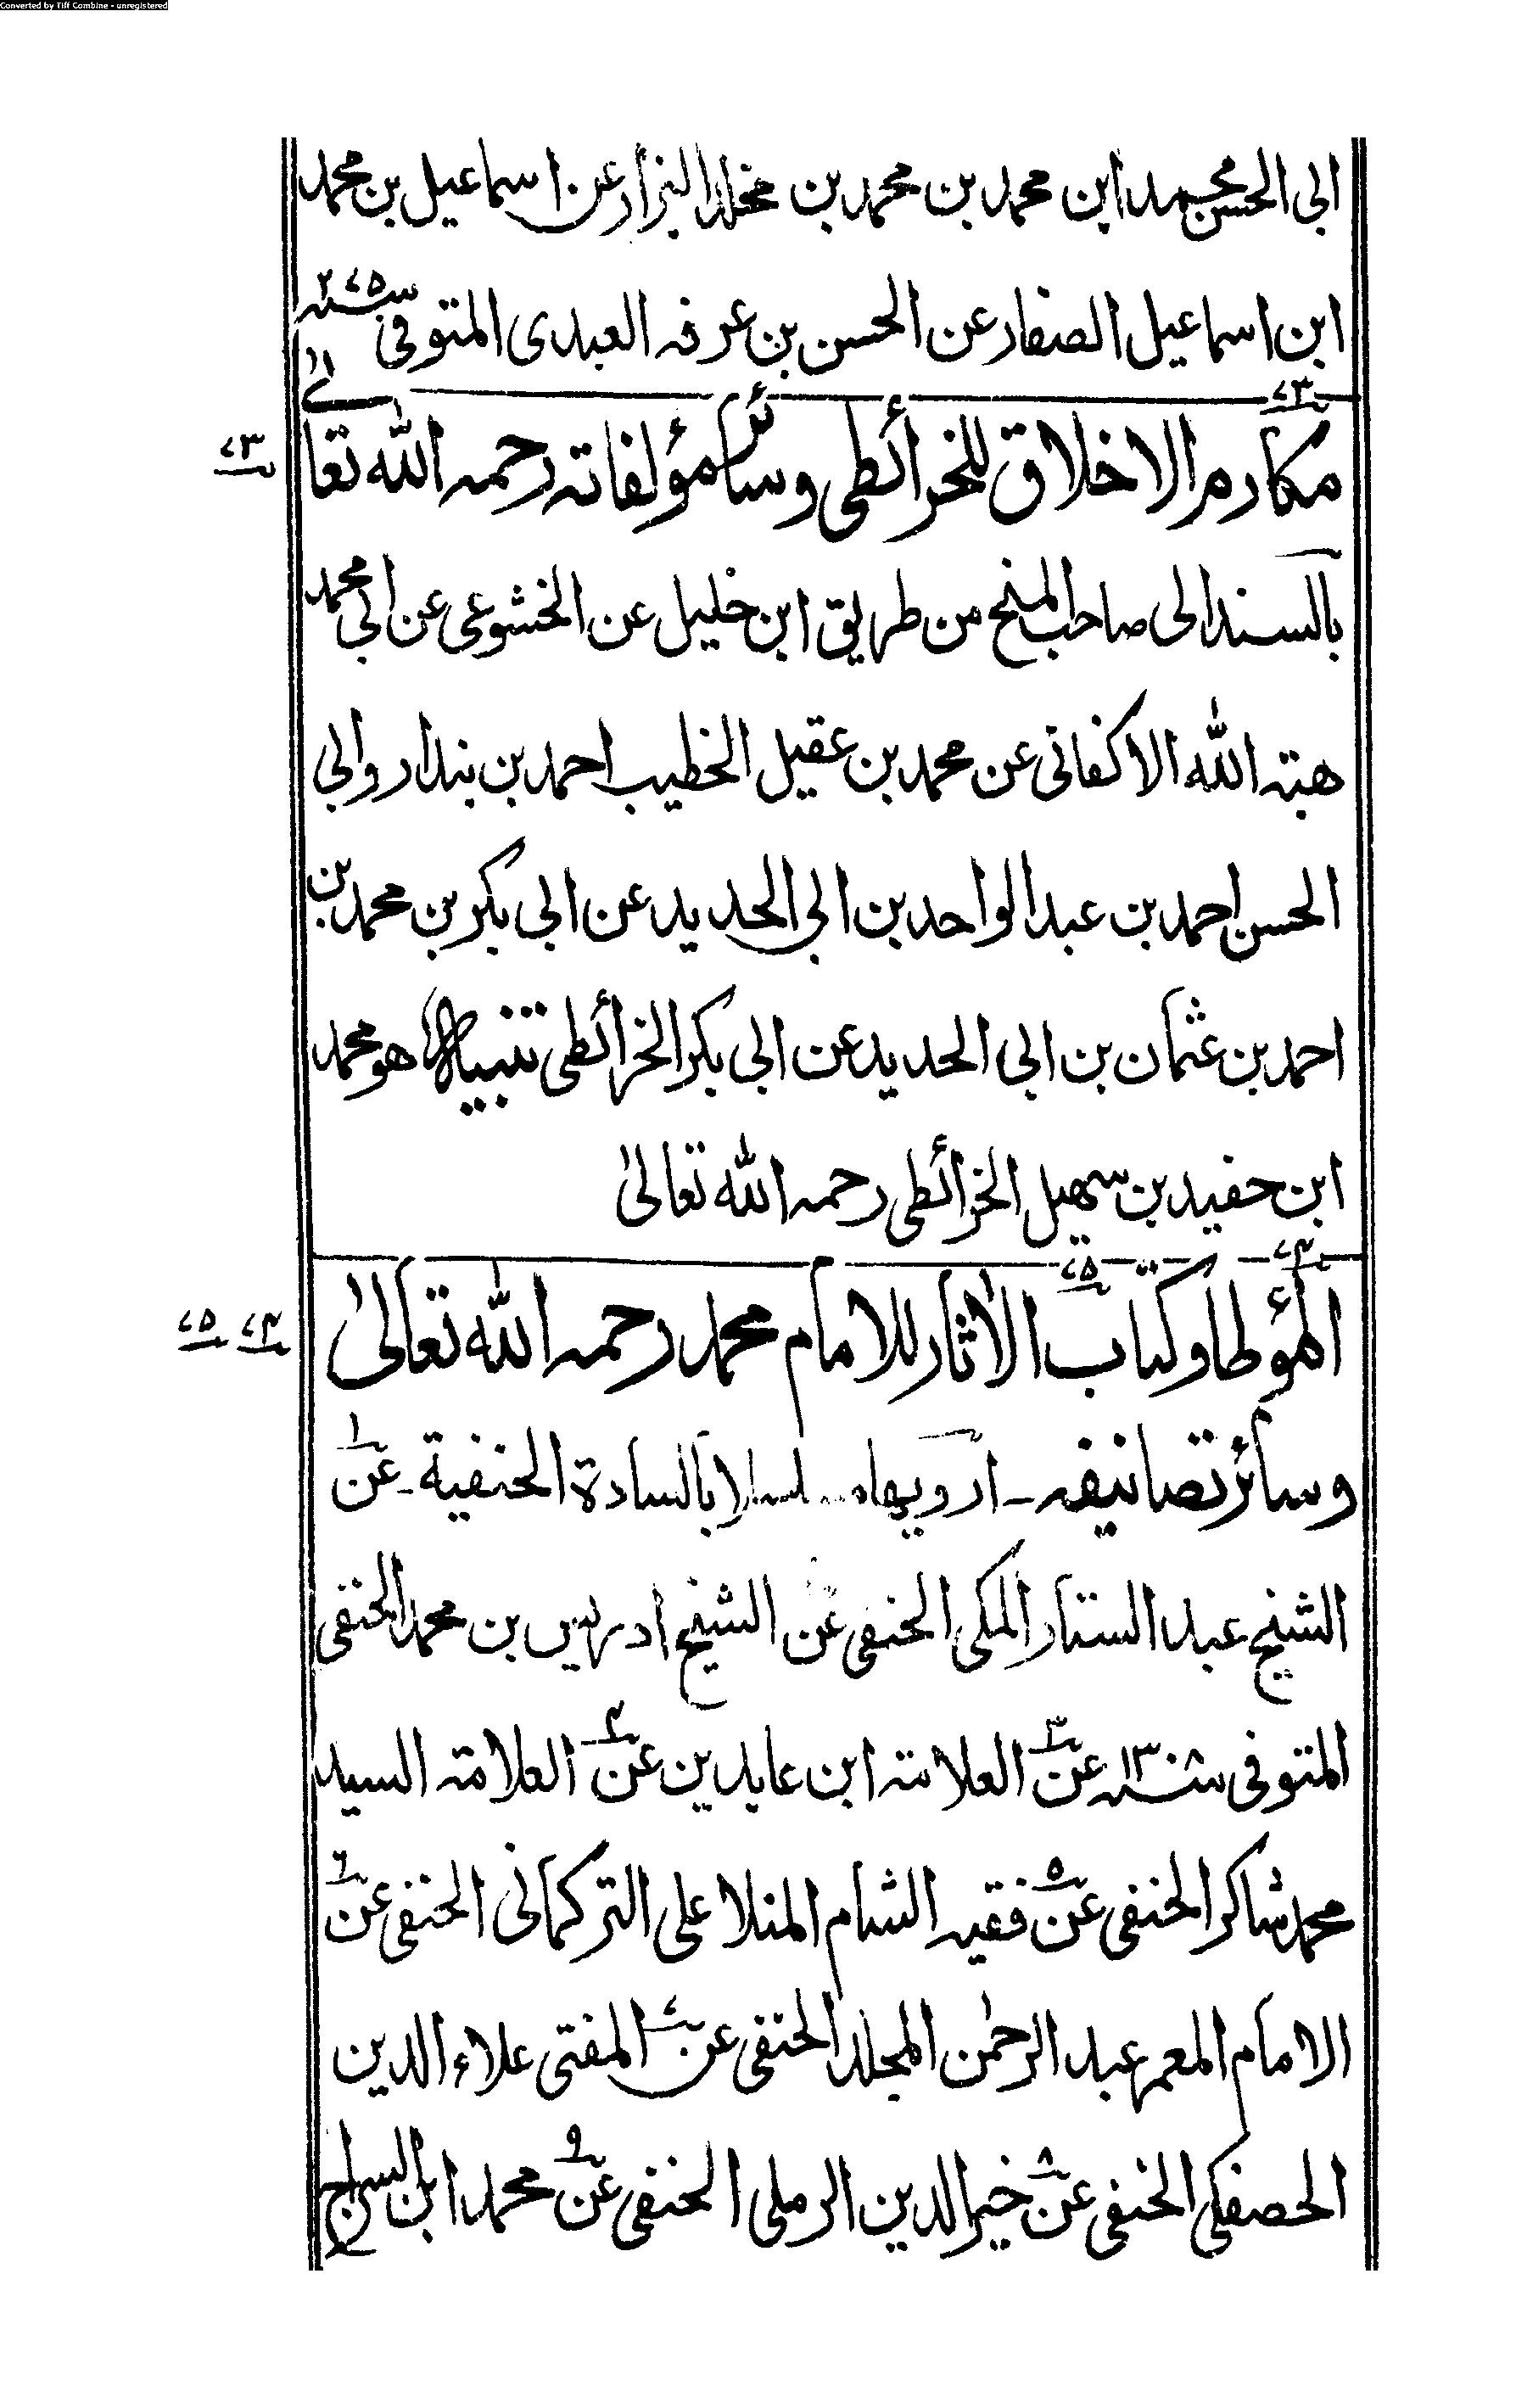 Converted by Tiff Combine - unregistered
ابی الحسن محمد ابن محمد بن محمد بن مخلد البزار عن اسماعیل بن محمد
ابن اسماعیل الصفار عن الحسن بن عرفہ العبدی المتوفی سنہ ۲۷۵
۷۳
مکارم الاخلاق للخرائطی وسائر مؤلفاتہ رحمہ اللہ تعالیٰ
۷۳
بالسند الی صاحب المنح من طریق ابن خلیل عن الخشوعی عن ابی محمد
ھبتہ اللہ الاکفانی عن محمد بن عقیل الخطیب احمد بن بندار وابی
الحسن احمد بن عبد الواحد بن ابی الحدید عن ابی بکر بن محمد بن
احمد بن عثمان بن ابی الحدید عن ابی بکر الخرائطی تنبیہ ھو محمد
ابن حفید بن سھیل الخرائطی رحمہ اللہ تعالیٰ
۷۴ ۷۵
المؤطا وکتاب الاٰثار للامام محمد رحمہ اللہ تعالیٰ
۷۴ ۷۵
وسائر تصانیفہ ـ ارویھا بالسادة الحنفیة ـ عن ۱
الشیخ عبد الستار المکی الحنفی عن الشیخ ادریس بن محمد الحنفی
المتوفی عن ۳ العلامتہ ابن عابدین عن ۴ العلامتہ السید
محمد شاکر الحنفی عن ۵ فقیہ الشام المنلا علی الترکمانی الحنفی عن ۶
الامام المعمر عبد الرحمٰن المجلد الحنفی عن ۷ المفتی علاء الدین
الحصفکی الحنفی عن ۸ خیر الدین الرملی الحنفی عن ۹ محمد ابن السراج